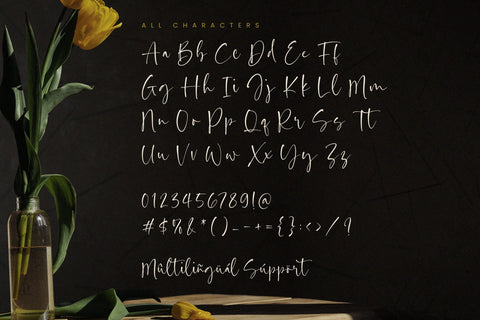 ALL CHARACTERS
Aa Bb Cc Dd Ee Ff
Gg Hh Ii Jj Kk Ll Mm
Nn Oo Pp Qq Rr Ss Tt
Uu Vv Ww Xx Yy Zz
0123456789!@
#$%&*()_-+={}:<>/?
Mültiliñgüál Súpport